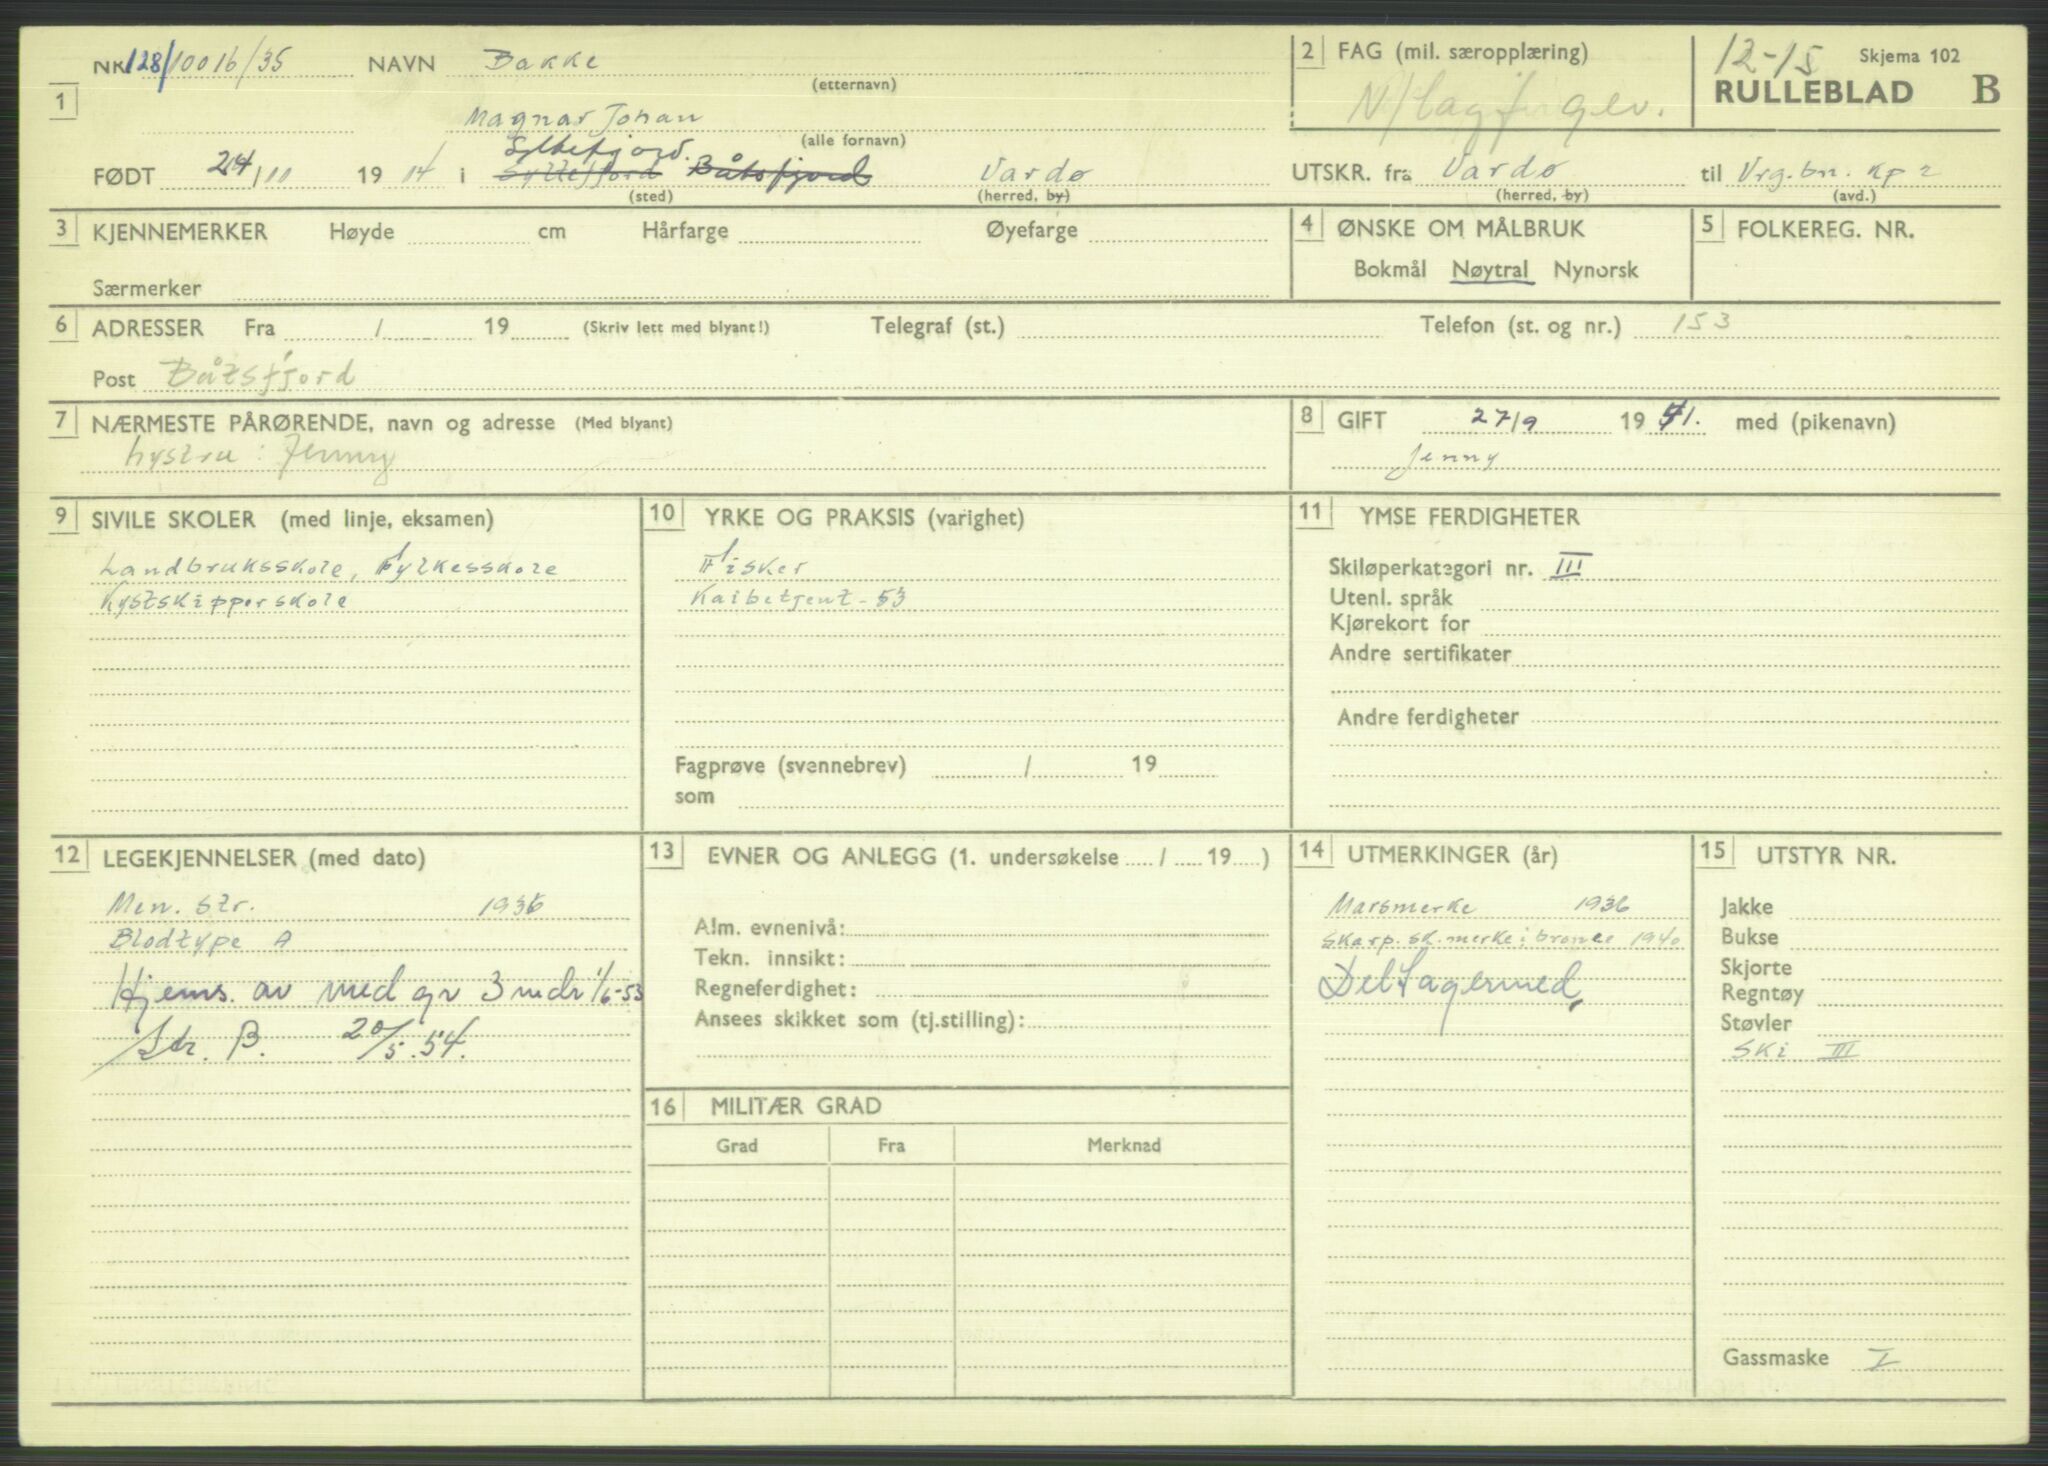 NR 128/10016/35 NAVN Bakke
(etternavn)
2 FAG (mil. særopplæring)
12-15 Skjema 102
1
Magnar Johan
(alle fornavn)
N/lagfører
RULLEBLAD B
Syltefjord.
FØDT 24/10 19 14 i Syltefjord Båtsfjord Vardø
(sted) (herred, by)
UTSKR. fra Vardø til Vrg.bn. Kp 2
(herred, by) (avd.)
3 KJENNEMERKER Høyde cm Hårfarge Øyefarge
Særmerker
4 ØNSKE OM MÅLBRUK
Bokmål Nøytral Nynorsk
5 FOLKEREG. NR.
6 ADRESSER Fra / 19 (Skriv lett med blyant!) Telegraf (st.) Telefon (st. og nr.) 153
Post Båtsfjord
7 NÆRMESTE PÅRØRENDE, navn og adresse (Med blyant)
hystru: Jenny
8 GIFT 27/9 19 41. med (pikenavn)
Jenny
9 SIVILE SKOLER (med linje, eksamen)
Landbruksskole, Fylkesskole
Kystskipperskole
10 YRKE OG PRAKSIS (varighet)
Fisker
Kaibetjent - 53
Fagprøve (svennebrev) / 19
som
11 YMSE FERDIGHETER
Skiløperkategori nr. III
Utenl. språk
Kjørekort for
Andre sertifikater
Andre ferdigheter
12 LEGEKJENNELSER (med dato)
Men. str. 1936
Blodtype A
Hjems. av med gr 3 mdr 1/6-53
Str. B. 20/5.54.
13 EVNER OG ANLEGG (1. undersøkelse / 19 )
Alm. evnenivå:
Tekn. innsikt:
Regneferdighet:
Ansees skikket som (tj.stilling):
14 UTMERKINGER (år)
Marsmerke 1936
Skarp. sk. merke i bronce 1940
Deltagermed.
15 UTSTYR NR.
Jakke
Bukse
Skjorte
Regntøy
Støvler
Ski III
Gassmaske I
16 MILITÆR GRAD
Grad Fra Merknad